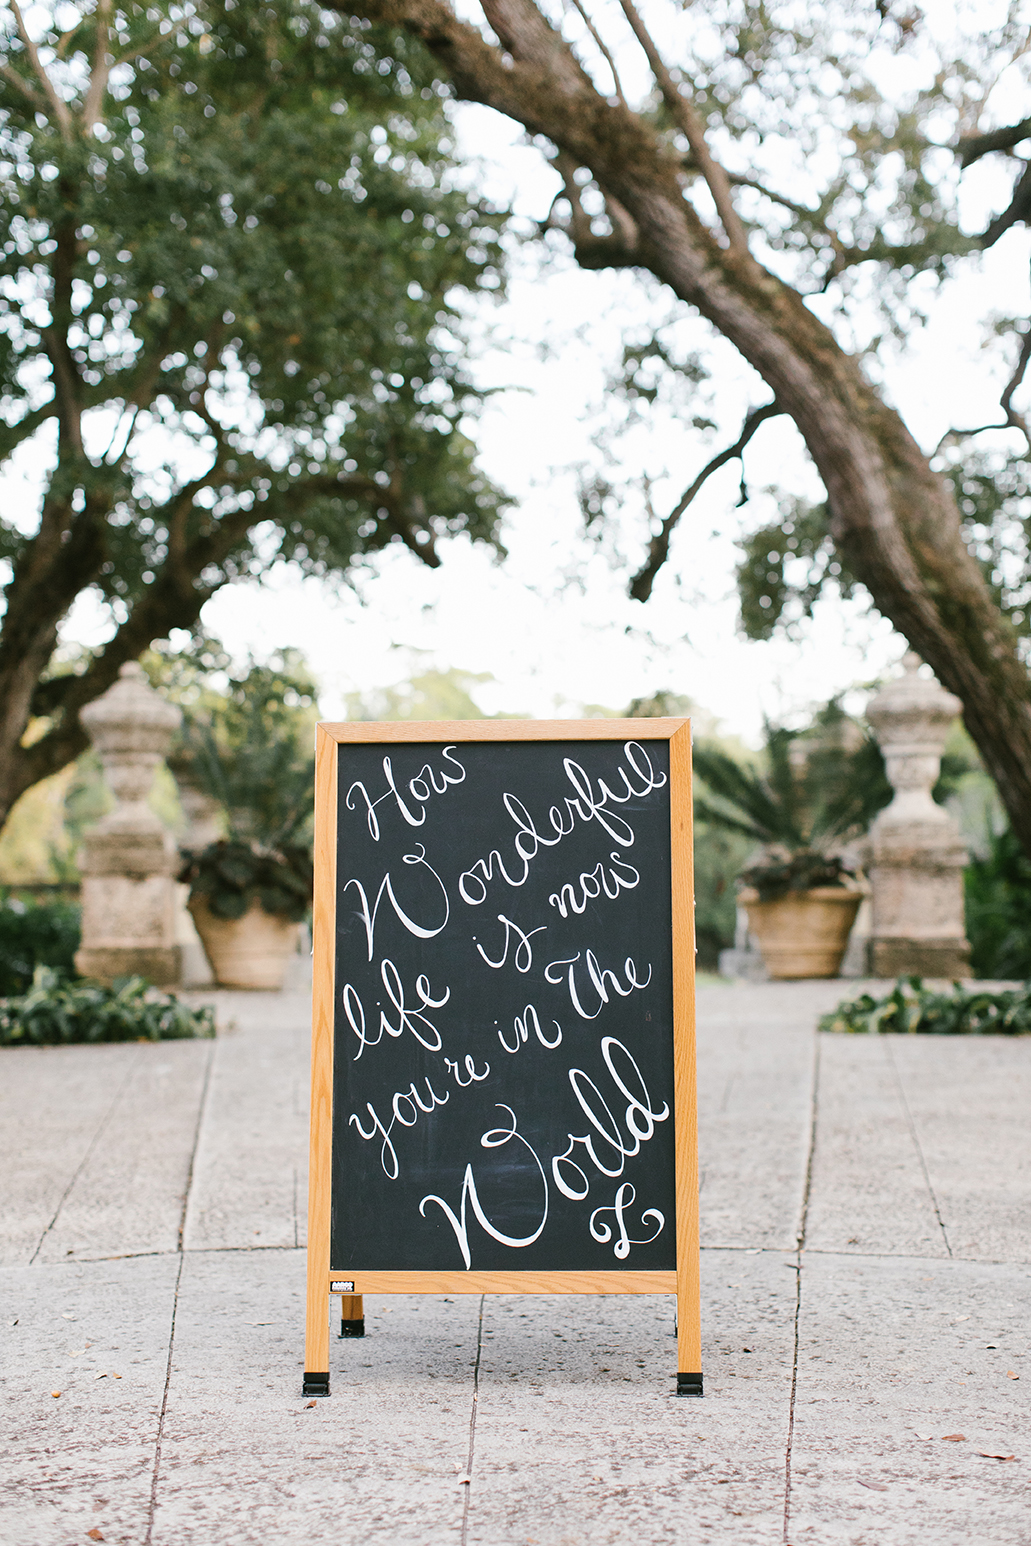 How
Wonderful
life is now
you're in The
World
L